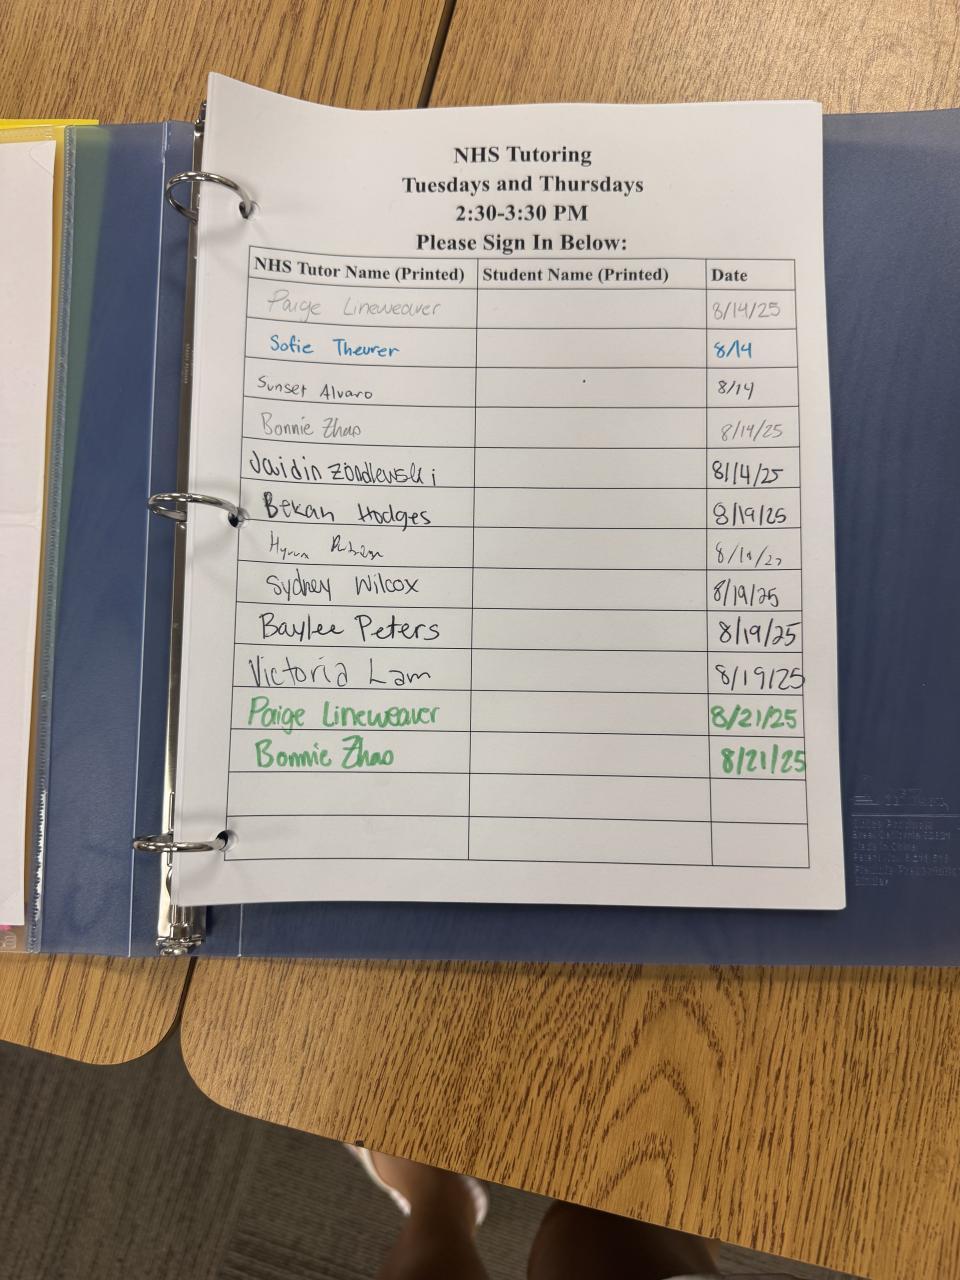 NHS Tutoring
Tuesdays and Thursdays
2:30-3:30 PM
Please Sign In Below:
NHS Tutor Name (Printed) Student Name (Printed) Date
Paige Lineweaver 8/14/25
Sofie Theurer 8/14
Sunset Alvaro 8/14
Bonnie Zhao 8/14/25
Jaidin 8/14/25
Bekah Hodges 8/19/25
Sydney Wilcox 8/19/25
Baylee Peters 8/19/25
Victoria Lam 8/19/25
Paige Lineweaver 8/21/25
Bonnie Zhao 8/21/25